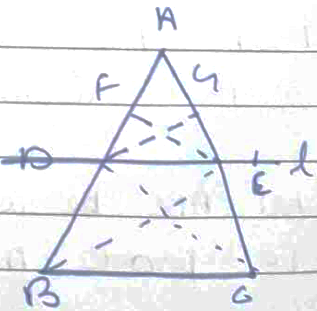 A
F G
D E l
B C